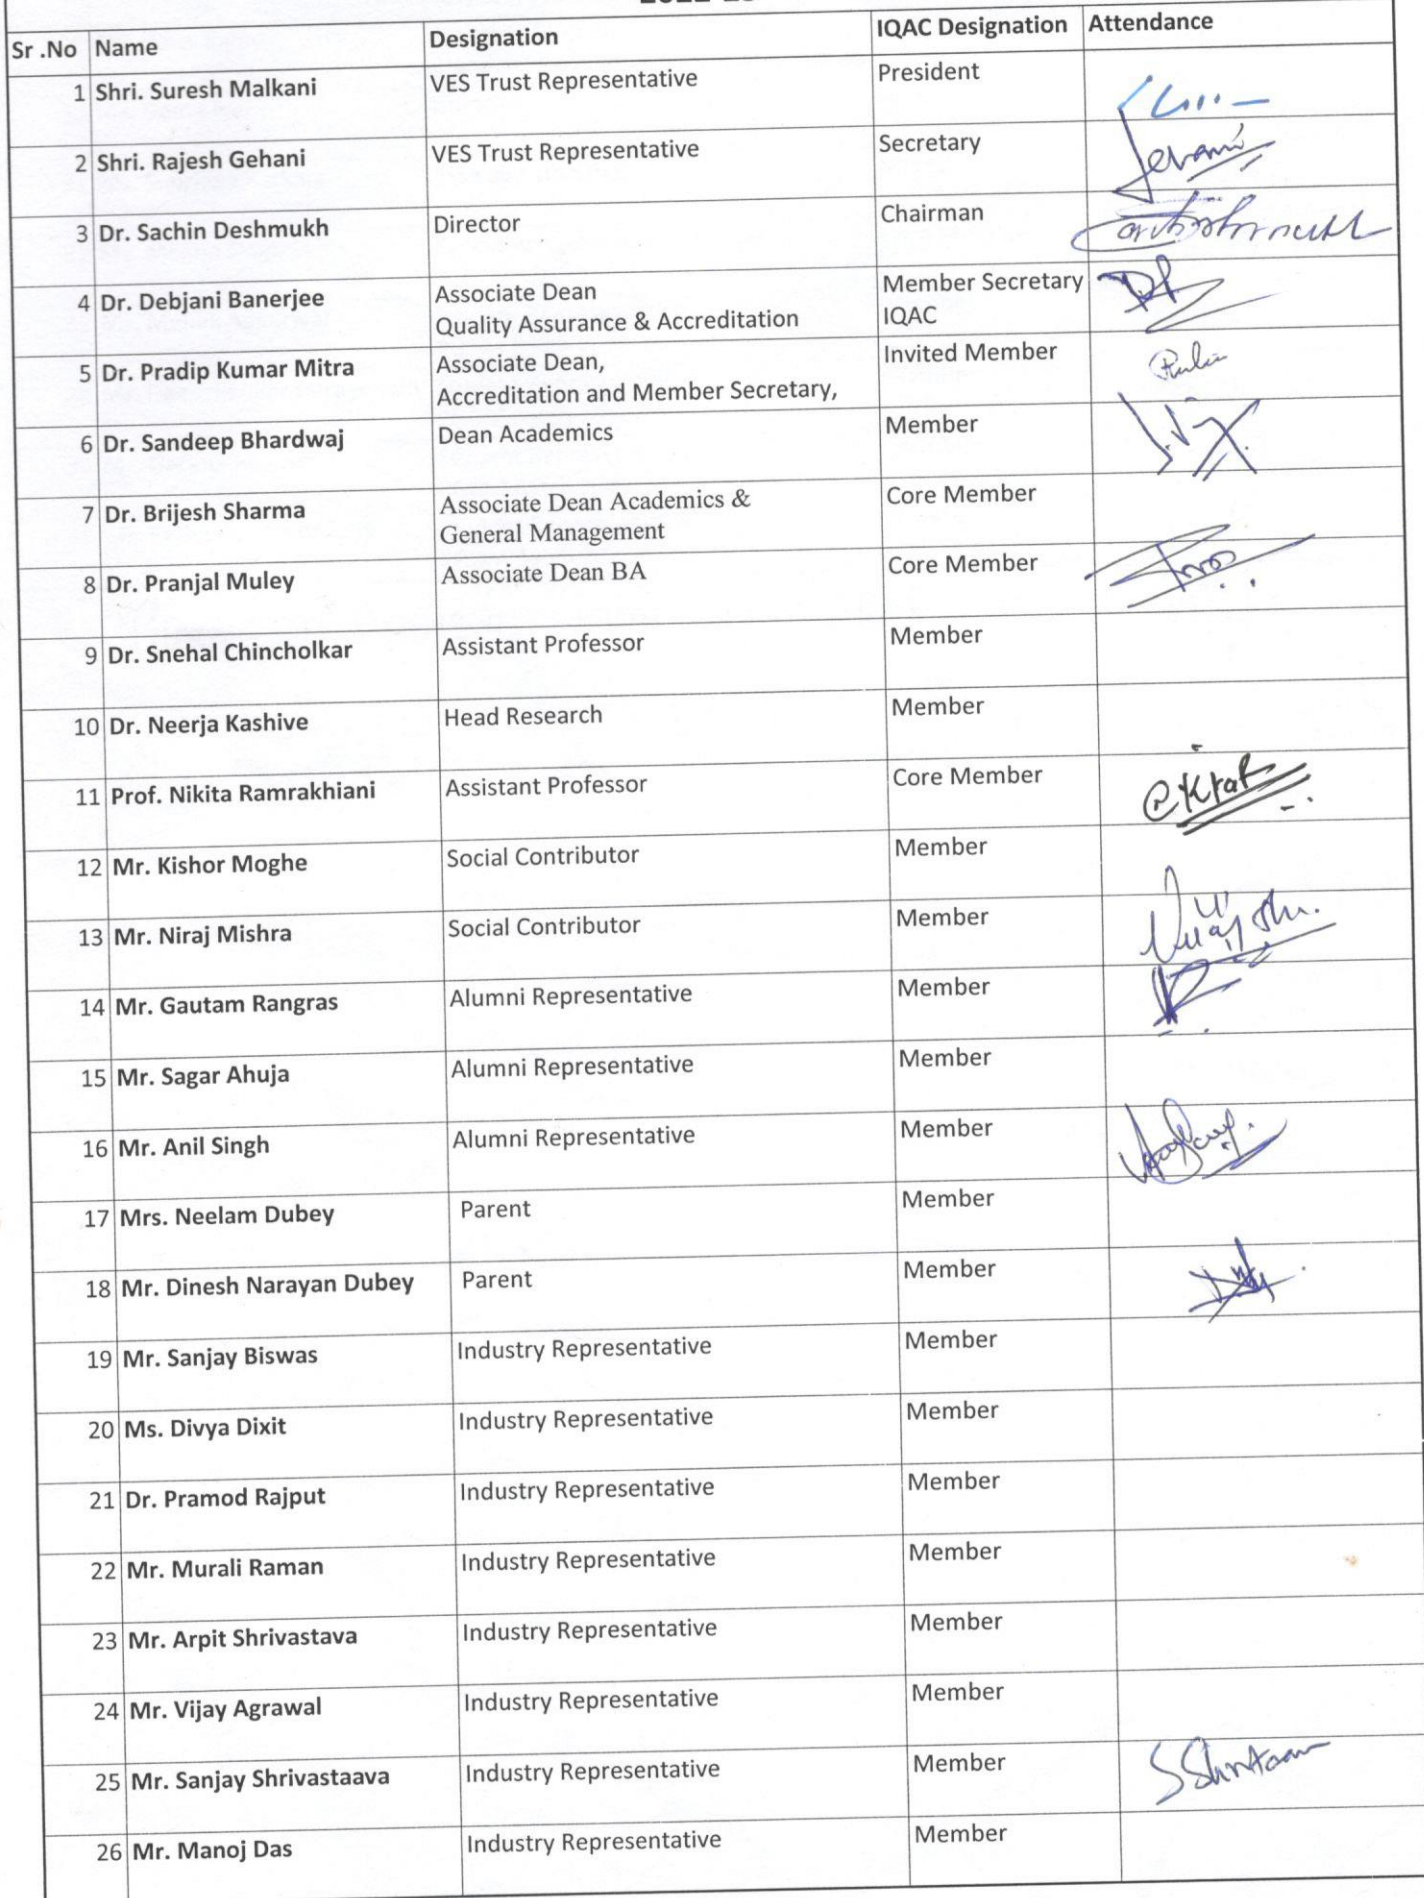 Sr .No Name Designation IQAC Designation Attendance
1 Shri. Suresh Malkani VES Trust Representative President
2 Shri. Rajesh Gehani VES Trust Representative Secretary
3 Dr. Sachin Deshmukh Director Chairman
4 Dr. Debjani Banerjee Associate Dean Member Secretary
Quality Assurance & Accreditation IQAC
5 Dr. Pradip Kumar Mitra Associate Dean, Invited Member
Accreditation and Member Secretary,
6 Dr. Sandeep Bhardwaj Dean Academics Member
7 Dr. Brijesh Sharma Associate Dean Academics & Core Member
General Management
8 Dr. Pranjal Muley Associate Dean BA Core Member
9 Dr. Snehal Chincholkar Assistant Professor Member
10 Dr. Neerja Kashive Head Research Member
11 Prof. Nikita Ramrakhiani Assistant Professor Core Member
12 Mr. Kishor Moghe Social Contributor Member
13 Mr. Niraj Mishra Social Contributor Member
14 Mr. Gautam Rangras Alumni Representative Member
15 Mr. Sagar Ahuja Alumni Representative Member
16 Mr. Anil Singh Alumni Representative Member
17 Mrs. Neelam Dubey Parent Member
18 Mr. Dinesh Narayan Dubey Parent Member
19 Mr. Sanjay Biswas Industry Representative Member
20 Ms. Divya Dixit Industry Representative Member
21 Dr. Pramod Rajput Industry Representative Member
22 Mr. Murali Raman Industry Representative Member
23 Mr. Arpit Shrivastava Industry Representative Member
24 Mr. Vijay Agrawal Industry Representative Member
25 Mr. Sanjay Shrivastaava Industry Representative Member
26 Mr. Manoj Das Industry Representative Member